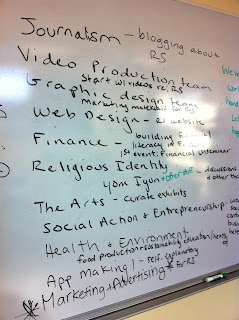 Journalism - blogging about RS
Video Production team
start w/ videos re: RS
Graphic design team
marketing materials for RS
Web Design - website
Finance - building financial
literacy in
1st event: Financial
Religious Identity
Yom Iyun
discussions
+ other
The Arts - curate exhibits
Social Action + Entrepreneurship
Health + Environment
food production + sustainability education
App Making! - self-explanatory
*Marketing + Advertising* for RS